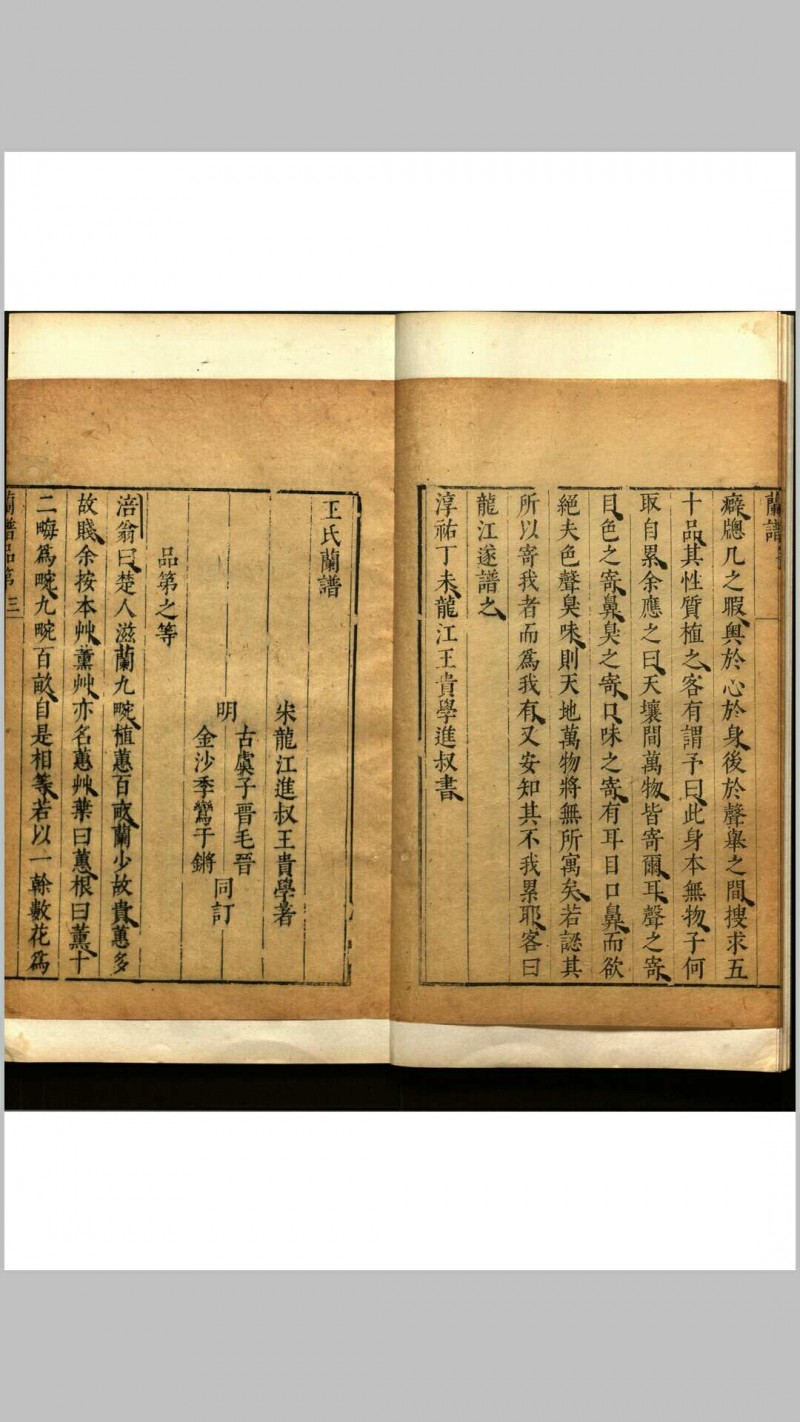 蘭譜
癖牕几之暇與於心於身後於聲譽之間搜求五
十品其性質植之客有謂予曰此身本無物子何
取自累余應之曰天壤間萬物皆寄爾耳聲之寄
目色之寄鼻臭之寄口味之寄有耳目口鼻而欲
絕夫色聲臭味則天地萬物將無所寓矣若認其
所以寄我者而爲我有又安知其不我累耶客曰
龍江遂譜之
淳祐丁未龍江王貴學進叔書
王氏蘭譜
宋龍江進叔王貴學著
明
古虞子晉毛晉
金沙季鸞于鏘
同訂
品第之等
涪翁曰楚人滋蘭九畹植蕙百畝蘭少故貴蕙多
故賤余按本艸薰艸亦名蕙艸葉曰蕙根曰薰十
二畮爲畹九畹百畝自是相等若以一榦數花爲
蘭譜品第 三